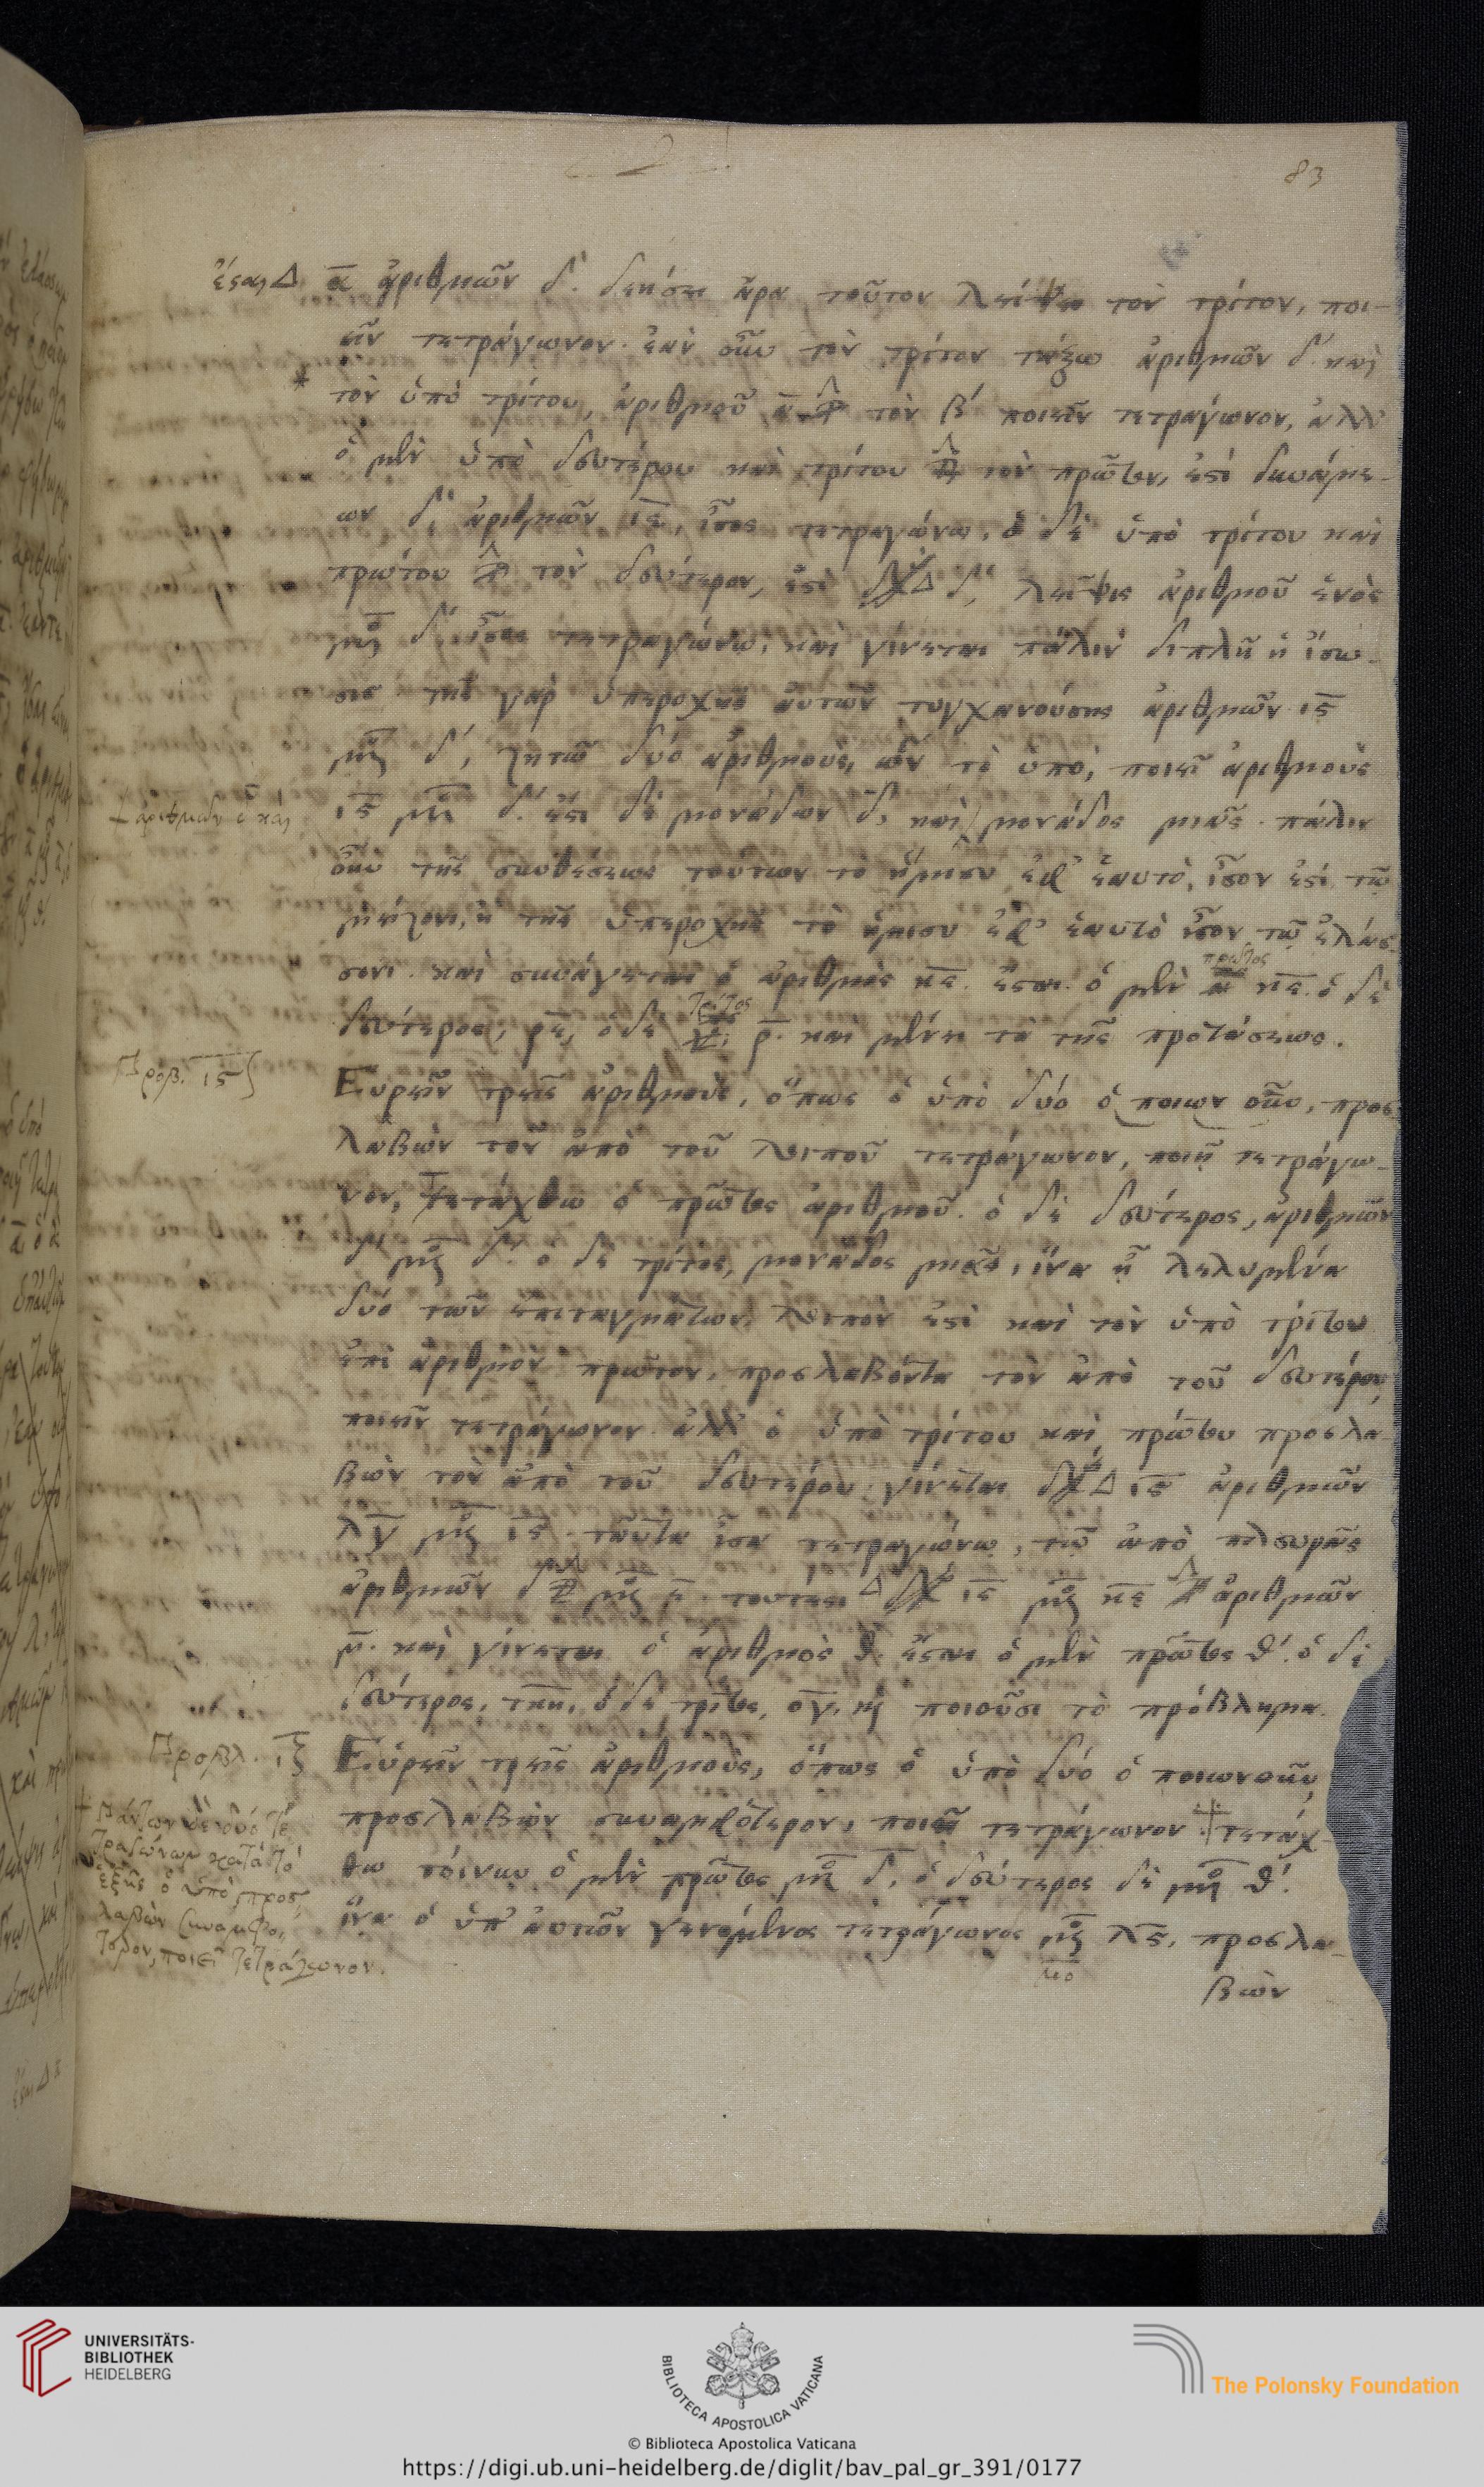 83
ἔσαι Δ ᾱ ἀριθμῶν δ΄. δεήσει ἄρα τοῦτον λείψει τὸν τρίτον, ποι-
εῖν τετράγωνον. ἐὰν οὖν τὸν τρίτον τάξω ἀριθμῶν δ΄ καὶ
τὸν ὑπὸ τρίτου, ἀριθμοῦ ᾱ τὸν β΄ ποιεῖν τετράγωνον, ἀλλ'
ὁ μὲν ὑπὸ δευτέρου καὶ τρίτου τὸν πρῶτον, ἐστὶ δυνάμε-
ων δ΄ ἀριθμῶν ιε, ἴσος τετραγώνῳ. ὁ δὲ ὑπὸ τρίτου καὶ
πρώτου τὸν δεύτερον, ἐστὶ Δ δ΄, λεῖψις ἀριθμοῦ ἑνὸς
μ̄ δ΄ ἴσος τετραγώνῳ. καὶ γίνεται πάλιν διπλῆ ἡ ἴσω-
σις τῆς γὰρ ὑπεροχῆς αὐτῶν τυγχανούσης ἀριθμῶν ις
μ̄ δ΄, ζητῶ δύο ἀριθμοὺς, ὧν τὸ ὑπὸ, ποιεῖ ἀριθμοὺς
ις μ̄ δ΄. ἔστι δὲ μονάδων δ, καὶ μονάδος μιᾶς. πάλιν
οὖν τῆς συνθέσεως τούτων τὸ ἥμισυ ἐφ' ἑαυτὸ, ἴσον ἐστὶ τῷ
μείζονι, ἢ τῆς ὑπεροχῆς τὸ ἥμισυ ἐφ' ἑαυτὸ ἴσον τῷ ἐλάσ-
πρῶτος
σονι. καὶ συνάγεται ὁ ἀριθμὸς κε. ἔσται ὁ μὲν κε. ὁ δὲ
τρίτος
δεύτερος, ρε, ὁ δὲ ρ. καὶ μένει τὰ τῆς προτάσεως.
Προβ. ις
Εὑρεῖν τρεῖς ἀριθμοὺς, ὅπως ὁ ὑπὸ δύο ὁποιωνοῦν, προσ-
λαβὼν τὸν ἀπὸ τοῦ λοιποῦ τετράγωνον, ποιῇ τετράγω-
νον, τετάχθω ὁ πρῶτος ἀριθμοῦ. ὁ δὲ δεύτερος, ἀριθμῶν
δ΄ μ̄ δ΄. ὁ δὲ τρίτος, μονάδος μιᾶς, ἵνα ᾖ λελυμένα
δύο τῶν ἐπιταγμάτων. λοιπὸν ἐστὶ καὶ τὸν ὑπὸ τρίτου
ἐπὶ ἀριθμὸν πρῶτον, προσλαβόντα τὸν ἀπὸ τοῦ δευτέρου,
ποιεῖν τετράγωνον. ἀλλ' ὁ ὑπὸ τρίτου καὶ πρώτου προσλα-
βὼν τὸν ἀπὸ τοῦ δευτέρου γίνεται Δ ις ἀριθμῶν
λγ μ̄ ις. ταῦτα ἴσα τετραγώνῳ, τῷ ἀπὸ πλευρᾶς
ἀριθμῶν δ μ̄ ε. τουτέστι Δ ις μ̄ κε ἀριθμῶν
μ̄. καὶ γίνεται ὁ ἀριθμὸς θ. ἔσται ὁ μὲν πρῶτος θ΄. ὁ δὲ
δεύτερος, τκη, ὁ δὲ τρίτος, ογ, καὶ ποιοῦσι τὸ πρόβλημα.
Προβλ. ιζ
Εὑρεῖν τρεῖς ἀριθμοὺς, ὅπως ὁ ὑπὸ δύο ὁποιωνοῦν,
προσλαβὼν συναμφότερον, ποιεῖ τετράγωνον + τετάχ-
θω τοίνυν ὁ μὲν πρῶτος μ̄ δ, ὁ δεύτερος δὲ μ̄ θ΄.
ἵνα ὁ ὑπ' αὐτῶν γενόμενος τετράγωνος μ̄ λς, προσλα-
βὼν
+ ἀριθμῶν ς καὶ
+ Πάντων δὲ δύο τε
τραγώνων κατὰ τὸ
ἑξῆς ὁ ὑπὸ προσ
λαβὼν συναμφό-
τερον, ποιεῖ τετράγωνον.
UNIVERSITÄTS-
BIBLIOTHEK
HEIDELBERG
BIBLIOTECA APOSTOLICA VATICANA
© Biblioteca Apostolica Vaticana
The Polonsky Foundation
https://digi.ub.uni-heidelberg.de/diglit/bav_pal_gr_391/0177